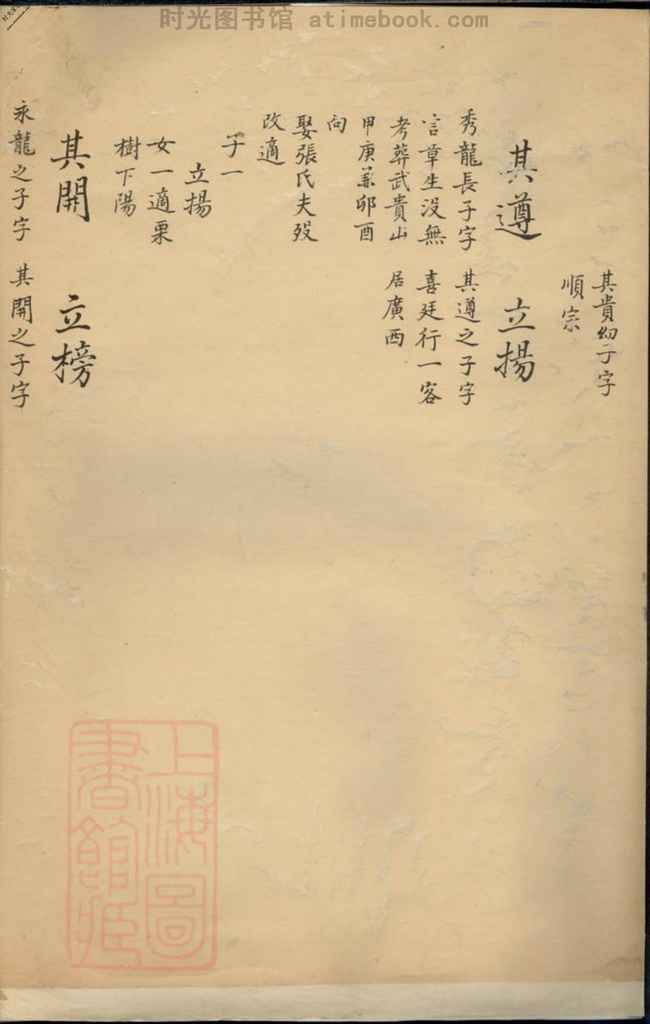 时光图书馆 atimebook.com
其貴幼子字
順宗
其遵
秀龍長子字
言章生沒無
考葬武貴山
甲庚兼卯酉
向
娶張氏夫歿
改適
子一
立揚
女一適栗
樹下陽
立揚
其遵之子字
喜廷行一客
居廣西
其開
永龍之子字
立榜
其開之子字
上海圖
書館藏